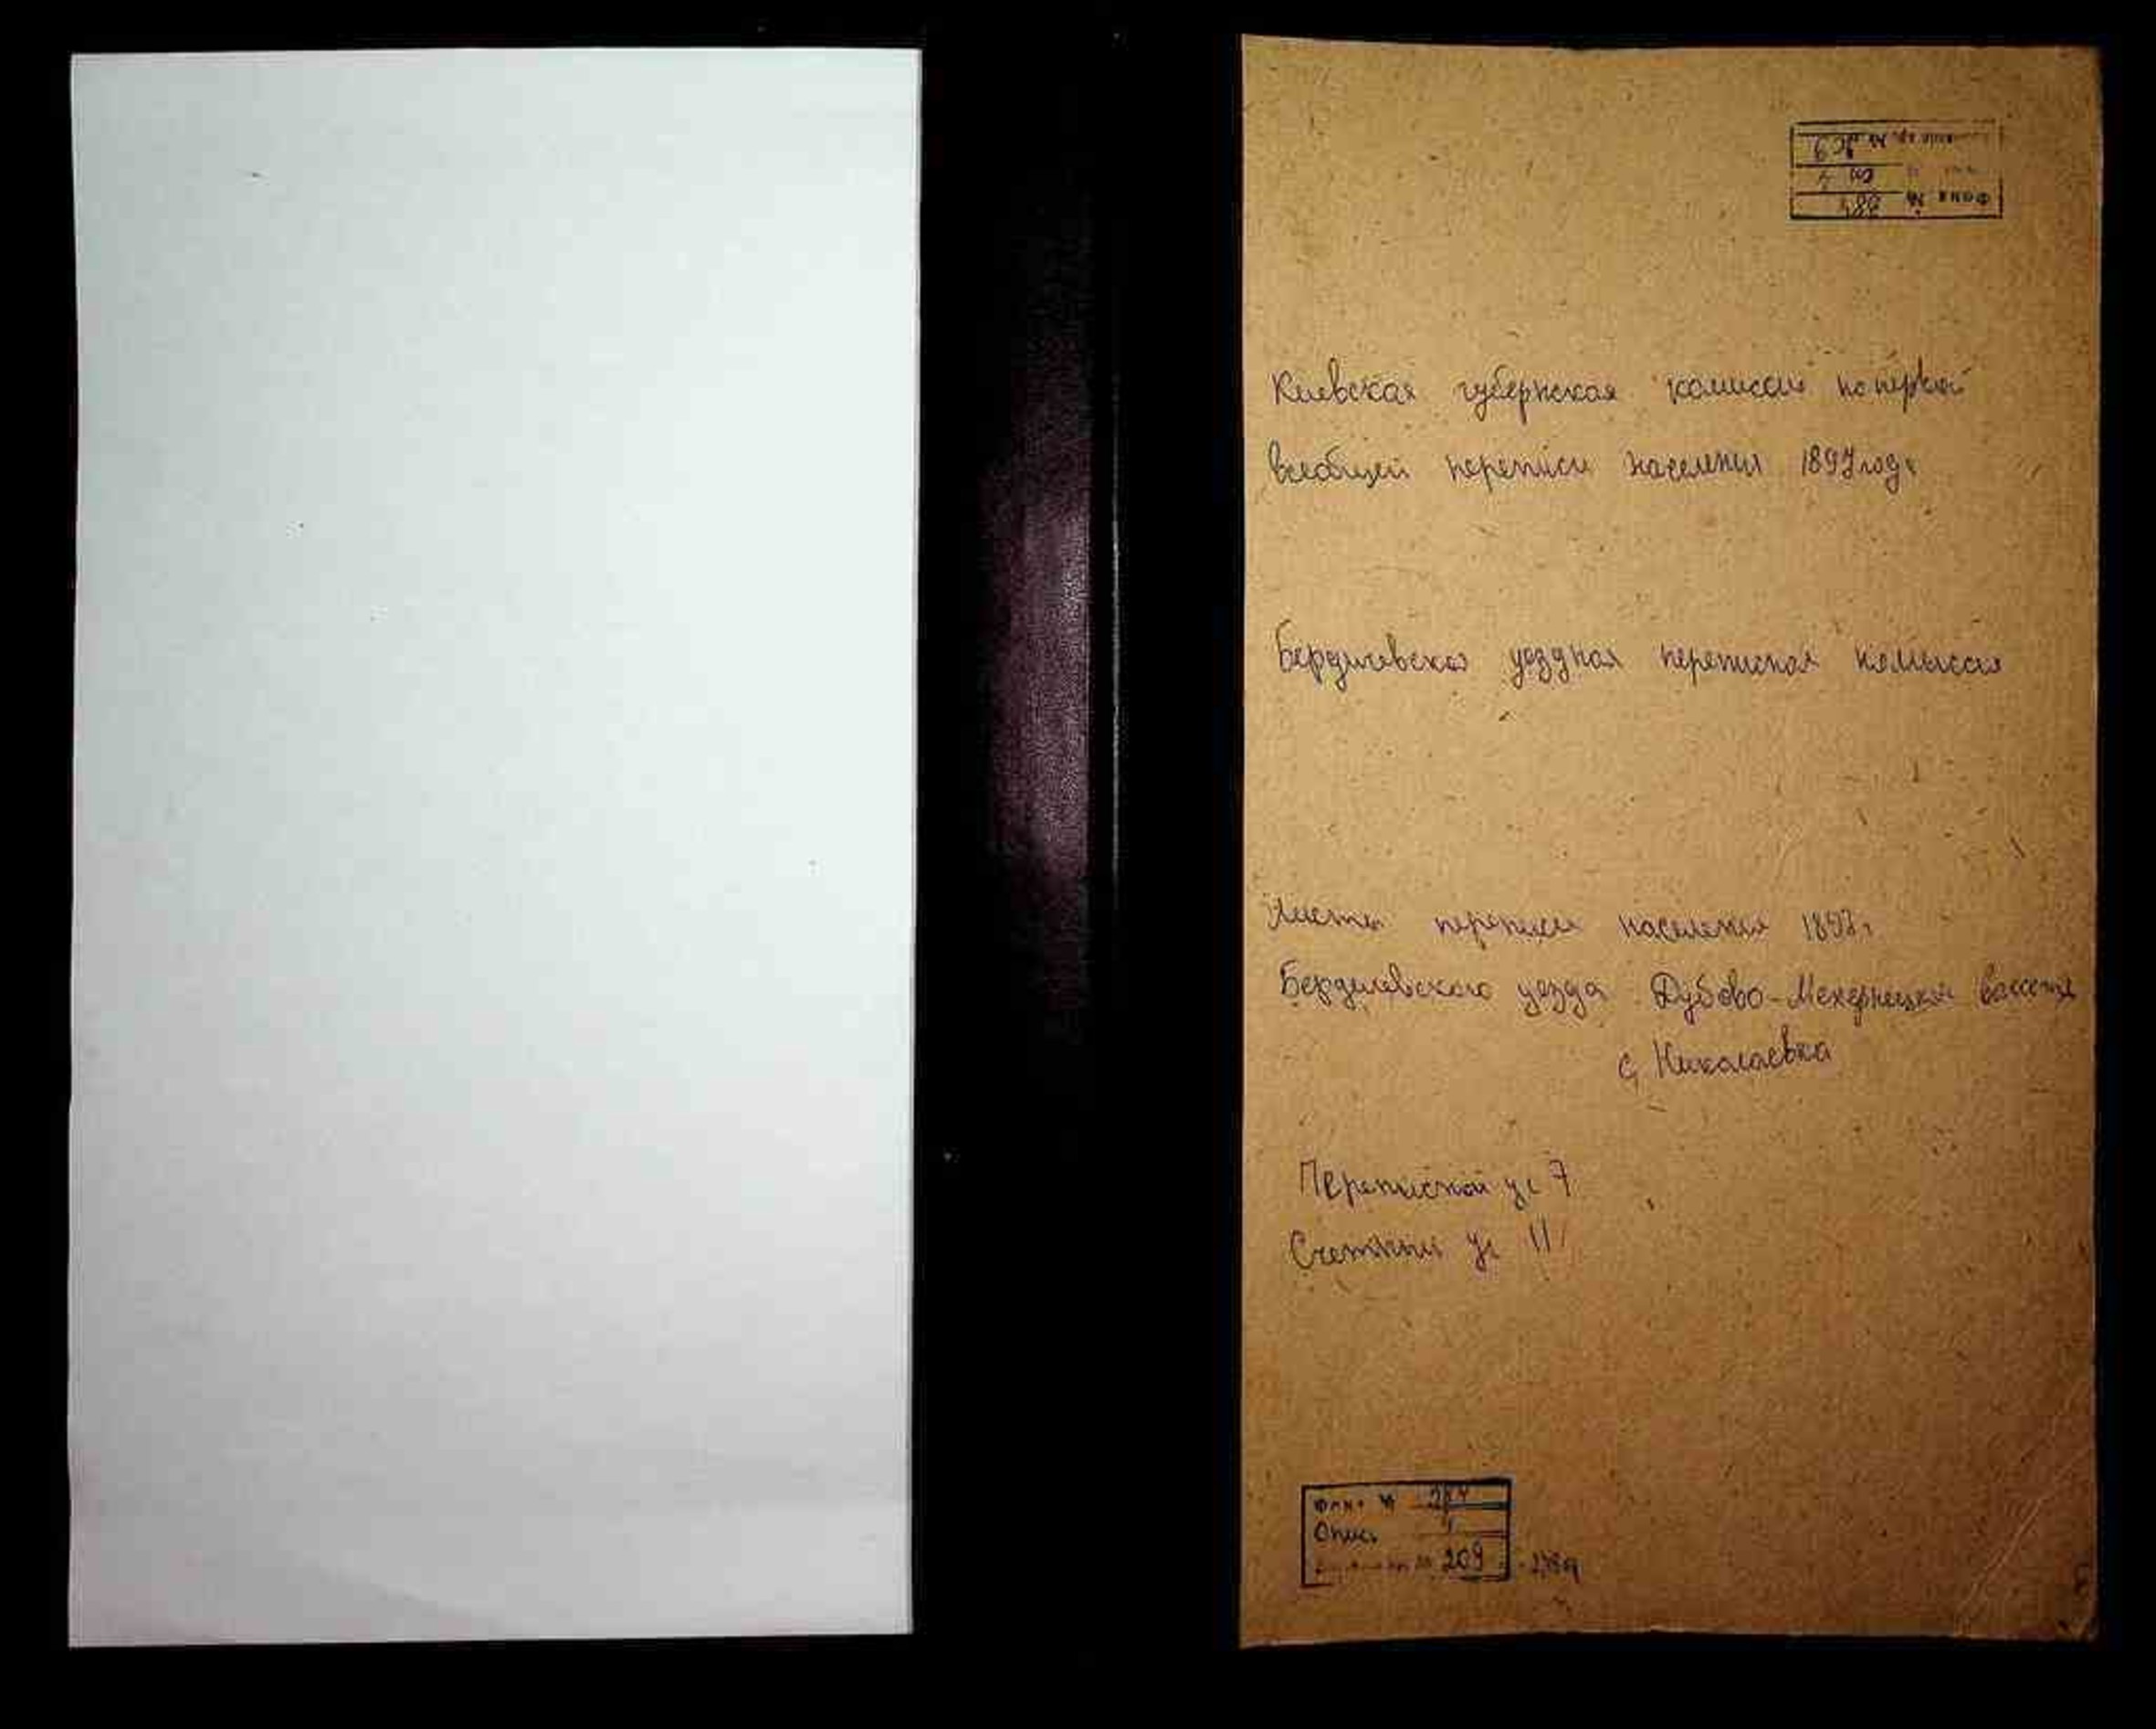 Фонд № 384
оп 4
№ 209
Киевская губернская комисия по первой
всеобщей переписи населения 1897 года
Бердичевская уездная переписная комиссия
Листы переписи населения 1897 г.
Бердичевского уезда Дубово-Махернецкой волости
с. Николаевка
Переписной ус 7
Счетный ус 11
Фонд № 384
Опись 4
209